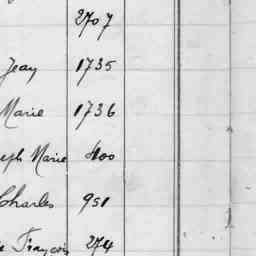 2707
Jean 1735
Marie 1736
eph Marie 400
Charles 951
François 274